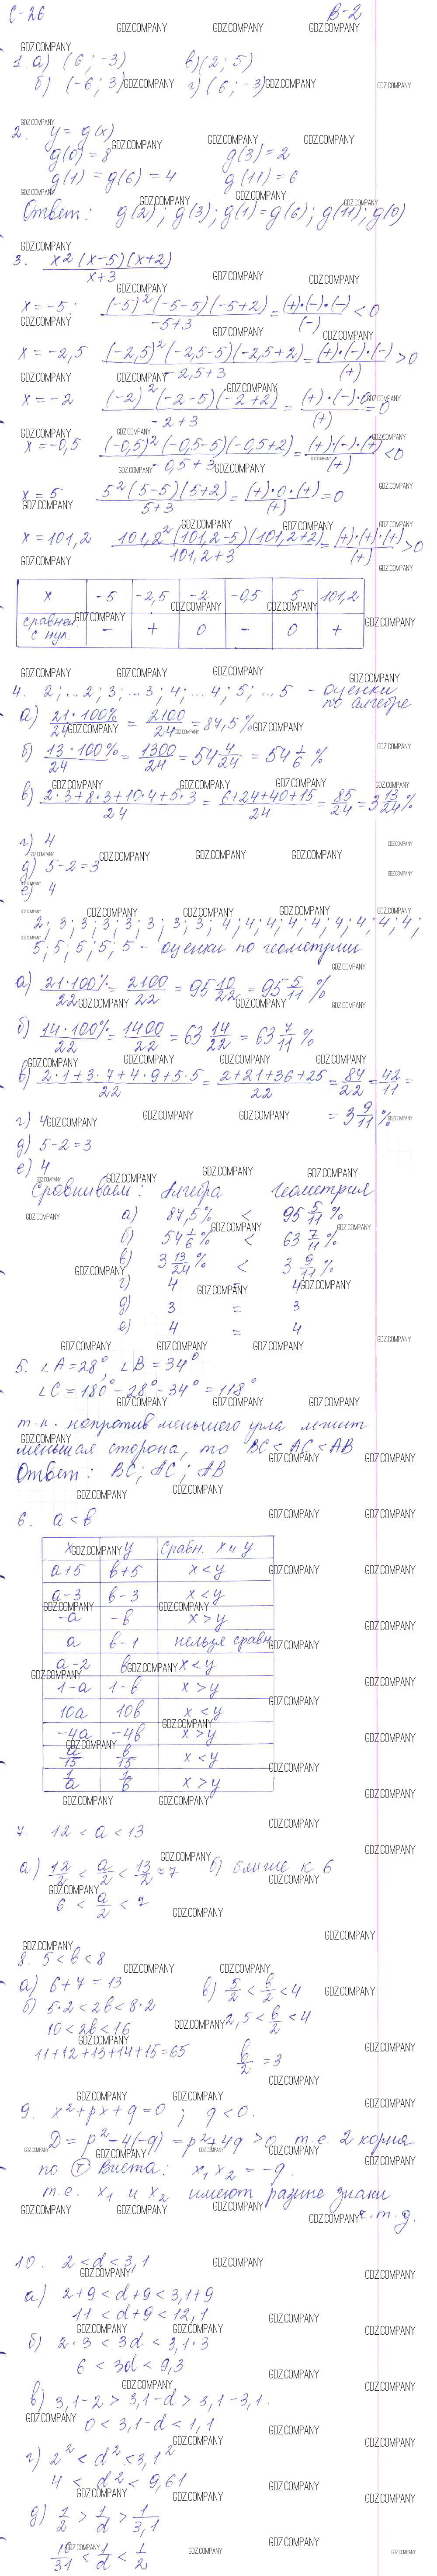 С-26 В-2
1. а) (6; -3) в) (2; 5)
б) (-6; 3) г) (6; -3)
2. y = g(x)
g(0) = 8 g(3) = 2
g(1) = g(6) = 4 g(11) = 6
Ответ: g(2); g(3); g(1) = g(6); g(11); g(0)
3. x2 (x-5)(x+2) / x+3
x = -5: (-5)²(-5-5)(-5+2) / -5+3 = (+)·(-)·(-) / (-) < 0
x = -2,5 (-2,5)²(-2,5-5)(-2,5+2) / -2,5+3 = (+)·(-)·(-) / (+) > 0
x = -2 (-2)²(-2-5)(-2+2) / -2+3 = (+)·(-)·0 / (+) = 0
x = -0,5 (-0,5)²(-0,5-5)(-0,5+2) / -0,5+3 = (+)·(-)·(+) / (+) < 0
x = 5 5²(5-5)(5+2) / 5+3 = (+)·0·(+) / (+) = 0
x = 101,2 101,2²(101,2-5)(101,2+2) / 101,2+3 = (+)·(+)·(+) / (+) > 0
x -5 -2,5 -2 -0,5 5 101,2
сравнен. с нул. - + 0 - 0 +
4. 2; ...2; 3; ...3; 4; ...4; 5; ...5 - оценки
по алгебре
а) 21·100% / 24 = 2100 / 24 = 87,5%
б) 13·100% / 24 = 1300 / 24 = 54 4/24 = 54 1/6 %
в) 2·3+8·3+10·4+5·3 / 24 = 6+24+40+15 / 24 = 85/24 = 3 13/24 %
г) 4
д) 5-2=3
е) 4
2; 3; 3; 3; 3; 3; 3; 3; 4; 4; 4; 4; 4; 4; 4; 4; 4;
5; 5; 5; 5; 5 - оценки по геометрии
а) 21·100% / 22 = 2100 / 22 = 95 10/22 = 95 5/11 %
б) 14·100% / 22 = 1400 / 22 = 63 14/22 = 63 7/11 %
в) 2·1+3·7+4·9+5·5 / 22 = 2+21+36+25 / 22 = 84/22 = 42/11 =
= 3 9/11 %
г) 4
д) 5-2=3
е) 4
Сравниваем: Алгебра Геометрия
а) 87,5% < 95 5/11 %
б) 54 1/6 % < 63 7/11 %
в) 3 13/24 % < 3 9/11 %
г) 4 = 4
д) 3 = 3
е) 4 = 4
5. ∠A = 28°, ∠B = 34°
∠C = 180° - 28° - 34° = 118°
т.к. напротив меньшего угла лежит
меньшая сторона, то BC < AC < AB
Ответ: BC; AC; AB
6. a < b
x y Сравн. x и y
a+5 b+5 x < y
a-3 b-3 x < y
-a -b x > y
a b-1 нельзя сравн.
a-2 b x < y
1-a 1-b x > y
10a 10b x < y
-4a -4b x > y
a/15 b/15 x < y
1/a 1/b x > y
7. 12 < a < 13
а) 12/2 < a/2 < 13/2 ≈ 7 б) ближе к 6
6 < a/2 < 7
8. 5 < b < 8
а) 6+7 = 13 в) 5/2 < b/2 < 4
б) 5·2 < 2b < 8·2
10 < 2b < 16 2,5 < b/2 < 4
11+12+13+14+15 = 65 b/2 = 3
9. x²+px+q=0; q<0.
D = p²-4(-q) = p²+4q > 0 т.е. 2 корня
по Т Виета: x₁ x₂ = -q.
т.е. x₁ и x₂ имеют разные знаки
ч.т.д.
10. 2 < d < 3,1
а) 2+9 < d+9 < 3,1+9
11 < d+9 < 12,1
б) 2·3 < 3d < 3,1·3
6 < 3d < 9,3
в) 3,1-2 > 3,1-d > 3,1-3,1.
0 < 3,1-d < 1,1
г) 2² < d² < 3,1²
4 < d² < 9,61
д) 1/2 > 1/d > 1/3,1
10/31 < 1/d < 1/2
GDZ.COMPANY